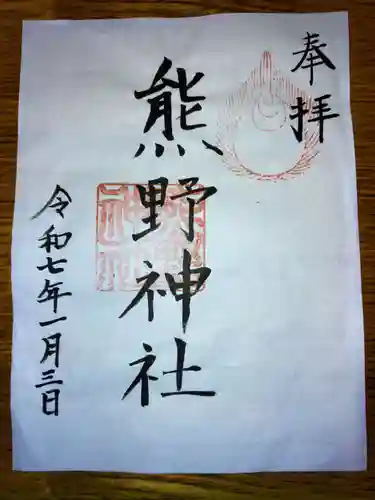 奉拝
熊野神社
令和七年一月三日